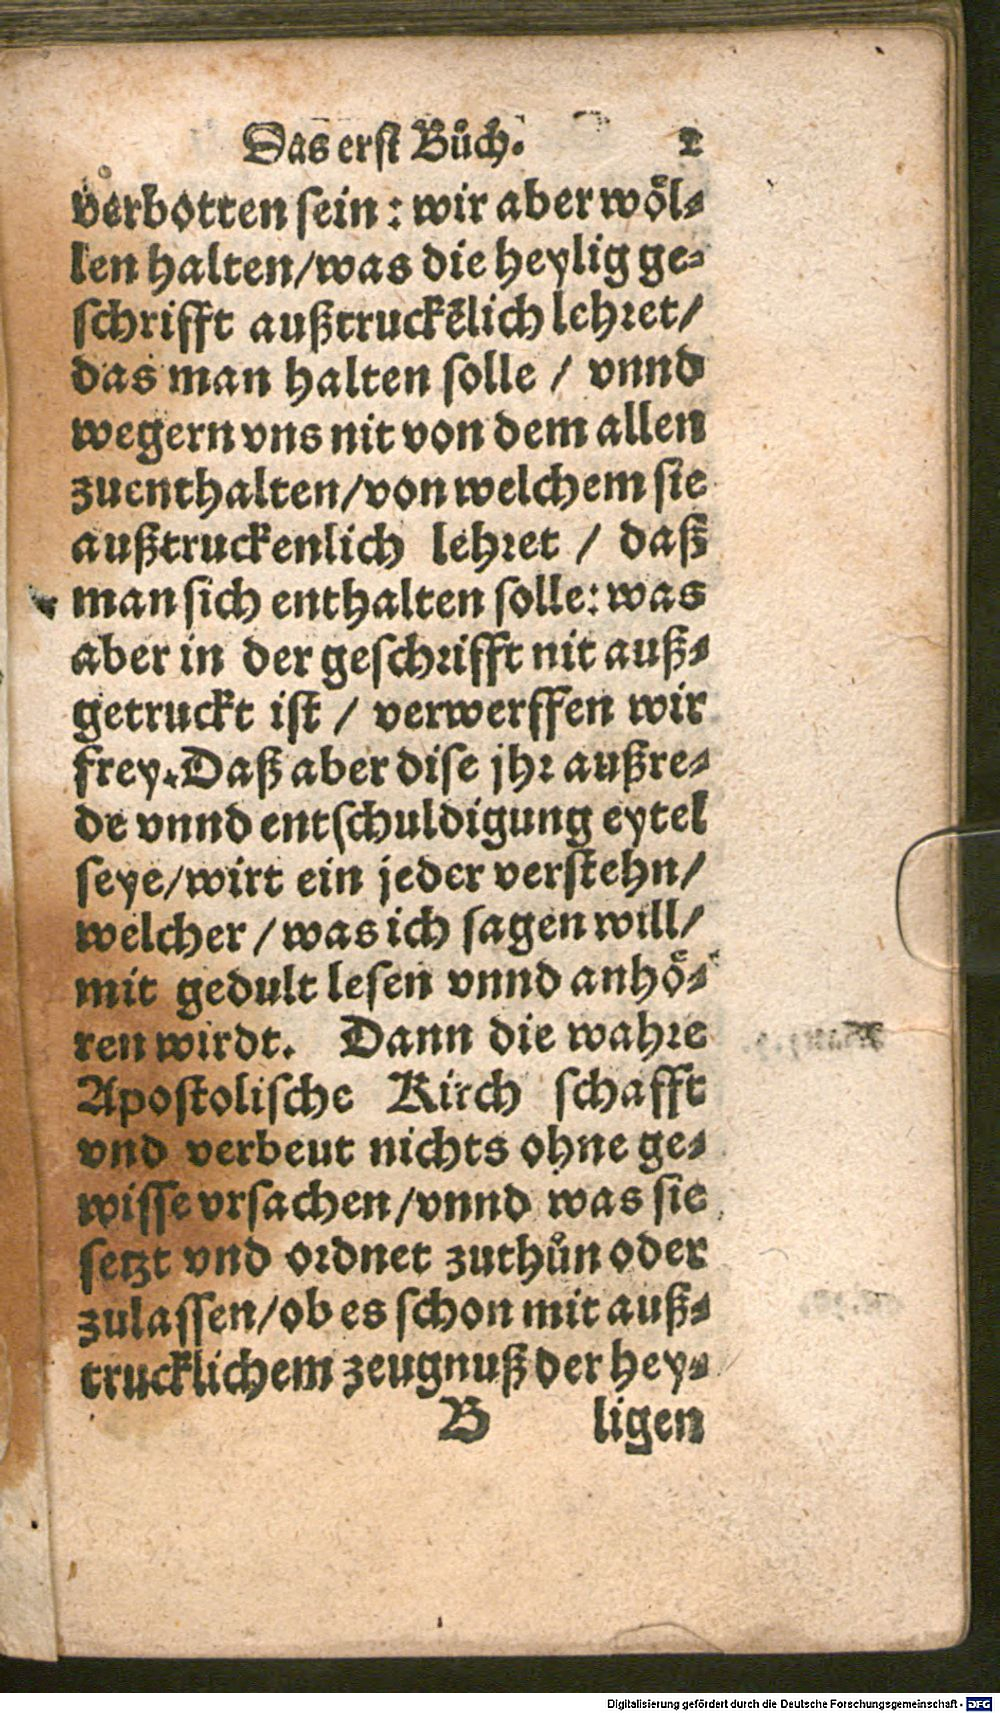 Das erst Bůch. 2
verbotten sein: wir aber wöl⸗
len halten/was die heylig ge⸗
schrifft außtruckēlich lehret/
das man halten solle / vnnd
wegern vns nit von dem allen
zuenthalten/von welchem sie
außtruckenlich lehret / daß
man sich enthalten solle: was
aber in der geschrifft nit auß⸗
getruckt ist / verwerffen wir
frey. Daß aber dise jhr außre⸗
de vnnd entschuldigung eytel
seye/wirt ein jeder verstehn/
welcher /was ich sagen will/
mit gedult lesen vnnd anhö⸗
ren wirdt. Dann die wahre
Apostolische Kirch schafft
vnd verbeut nichts ohne ge⸗
wisse vrsachen/vnnd was sie
setzt vnd ordnet zuthůn oder
zulassen/ob es schon mit auß⸗
trucklichem zeugnuß der hey⸗
B ligen
Digitalisierung gefördert durch die Deutsche Forschungsgemeinschaft - DFG